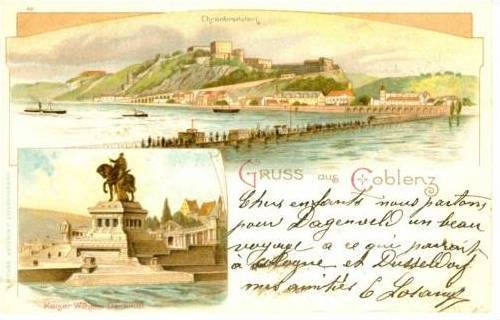 Ehrenbreitstein
GRUSS aus Coblenz
Chers enfants nous partons
pour un beau
voyage a ce qui parait
à Cologne et Dusseldorf
mes amitiés
Kaiser Wilhelm Denkmal